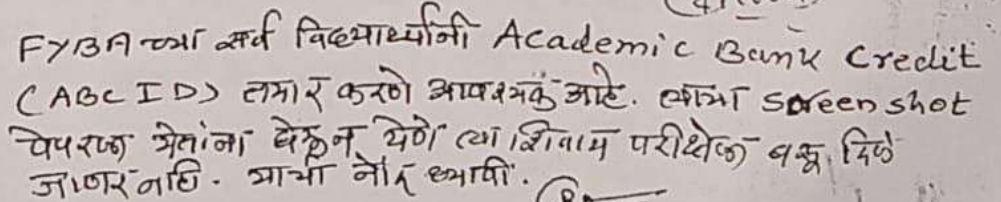 FYBA च्या सर्व विद्यार्थ्यांनी Academic Bank Credit
(ABC ID) तयार करणे आवश्यक आहे. त्याचा Screen shot
पेपरला येतांना घेऊन येणे त्या शिवाय परीक्षेला बसू दिले
जाणार नाही. याची नोंद घ्यावी.